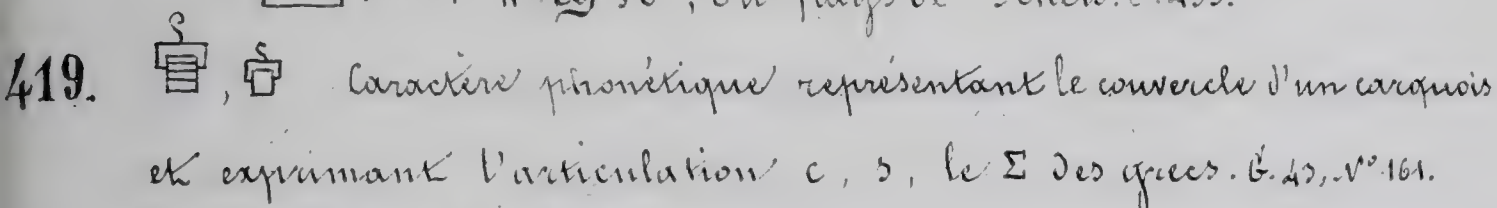 419. , Caractère phonétique représentant le couvercle d'un carquois
et exprimant l'articulation c, s, le Σ des grecs. G. 43, N° 161.